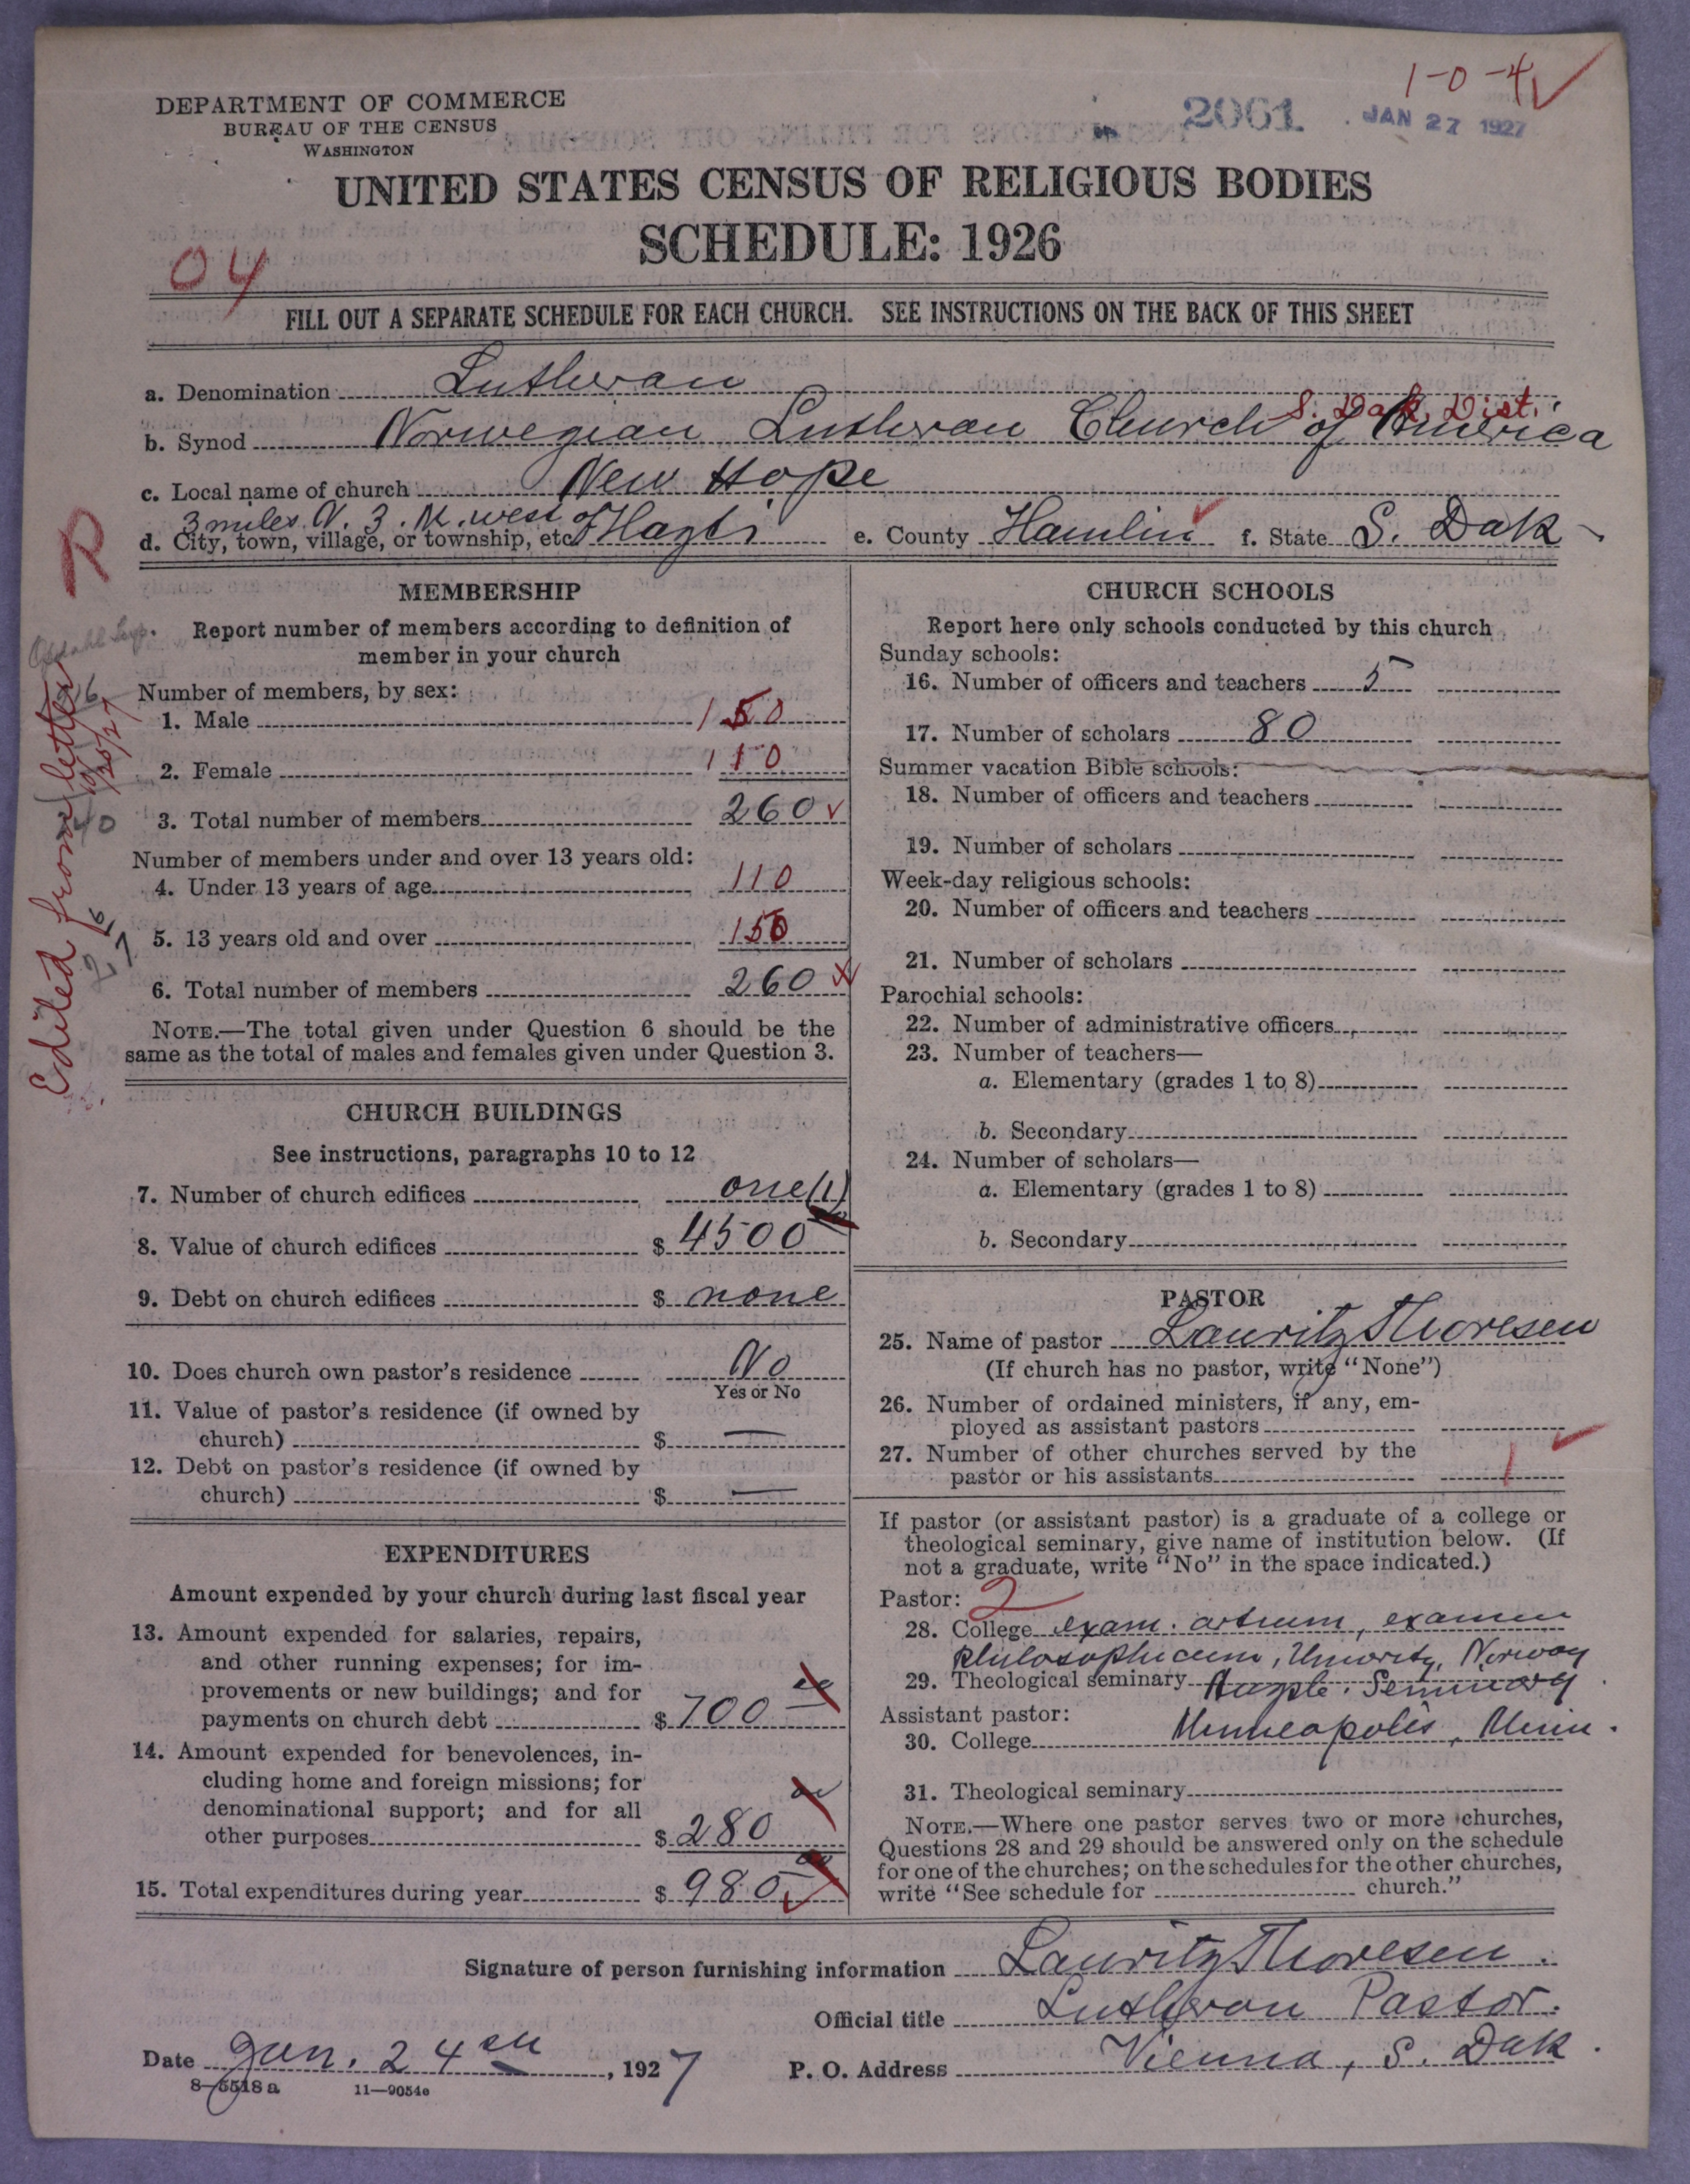 1-0-4
DEPARTMENT OF COMMERCE
BUREAU OF THE CENSUS
WASHINGTON
2061
JAN 27 1927
UNITED STATES CENSUS OF RELIGIOUS BODIES
SCHEDULE: 1926
04
FILL OUT A SEPARATE SCHEDULE FOR EACH CHURCH. SEE INSTRUCTIONS ON THE BACK OF THIS SHEET
a. Denomination Lutheran
S. Dak. Dist.
b. Synod Norwegian Lutheran Church of America
c. Local name of church New Hope
3 miles N. 3. M. west of
d. City, town, village, or township, etc. Hayti e. County Hamlin f. State S. Dak
R
Edited from letter
MEMBERSHIP
Report number of members according to definition of
member in your church
Number of members, by sex:
1. Male 150
2. Female 110
3. Total number of members 260
Number of members under and over 13 years old:
4. Under 13 years of age 110
5. 13 years old and over 150
6. Total number of members 260
NOTE.—The total given under Question 6 should be the
same as the total of males and females given under Question 3.
CHURCH BUILDINGS
See instructions, paragraphs 10 to 12
7. Number of church edifices one (1)
8. Value of church edifices $ 4500
9. Debt on church edifices $ none
10. Does church own pastor's residence No
Yes or No
11. Value of pastor's residence (if owned by
church) $ —
12. Debt on pastor's residence (if owned by
church) $ —
EXPENDITURES
Amount expended by your church during last fiscal year
13. Amount expended for salaries, repairs,
and other running expenses; for im-
provements or new buildings; and for
payments on church debt $ 700
14. Amount expended for benevolences, in-
cluding home and foreign missions; for
denominational support; and for all
other purposes $ 280
15. Total expenditures during year $ 980
CHURCH SCHOOLS
Report here only schools conducted by this church
Sunday schools:
16. Number of officers and teachers 5
17. Number of scholars 80
Summer vacation Bible schools:
18. Number of officers and teachers
19. Number of scholars
Week-day religious schools:
20. Number of officers and teachers
21. Number of scholars
Parochial schools:
22. Number of administrative officers
23. Number of teachers—
a. Elementary (grades 1 to 8)
b. Secondary
24. Number of scholars—
a. Elementary (grades 1 to 8)
b. Secondary
PASTOR
25. Name of pastor Lauritz Thoresen
(If church has no pastor, write "None")
26. Number of ordained ministers, if any, em-
ployed as assistant pastors
27. Number of other churches served by the
pastor or his assistants 1
If pastor (or assistant pastor) is a graduate of a college or
theological seminary, give name of institution below. (If
not a graduate, write "No" in the space indicated.)
Pastor: 2
28. College exam. artium, examen
philosophicum, University, Norway
29. Theological seminary Seminary
Assistant pastor:
Minneapolis, Minn.
30. College
31. Theological seminary
NOTE.—Where one pastor serves two or more churches,
Questions 28 and 29 should be answered only on the schedule
for one of the churches; on the schedules for the other churches,
write "See schedule for church."
Signature of person furnishing information Lauritz Thoresen.
Official title Lutheran Pastor.
Date Jan. 24th, 1927 P. O. Address Vienna, S. Dak.
8—5518 a 11—9054e